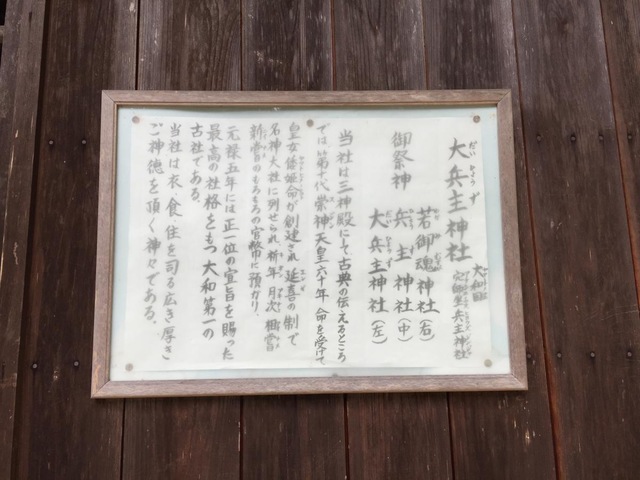 大兵主神社
大和国
穴師坐兵主神社
御祭神
若御魂神社(右)
兵主神社(中)
大兵主神社(左)
当社は三神殿にして、古典の伝えるところ
では、第十代崇神天皇六十年 命を受けて
皇女倭姫命が創建され延喜の制で
名神大社に列せられ祈年 月次 相嘗
新嘗のもろもろの官幣に預かり、
元禄五年には正一位の宣旨を賜った
最高の社格をもつ大和第一の
古社である。
当社は衣・食・住を司る広き・厚き
ご神徳を頂く神々である。